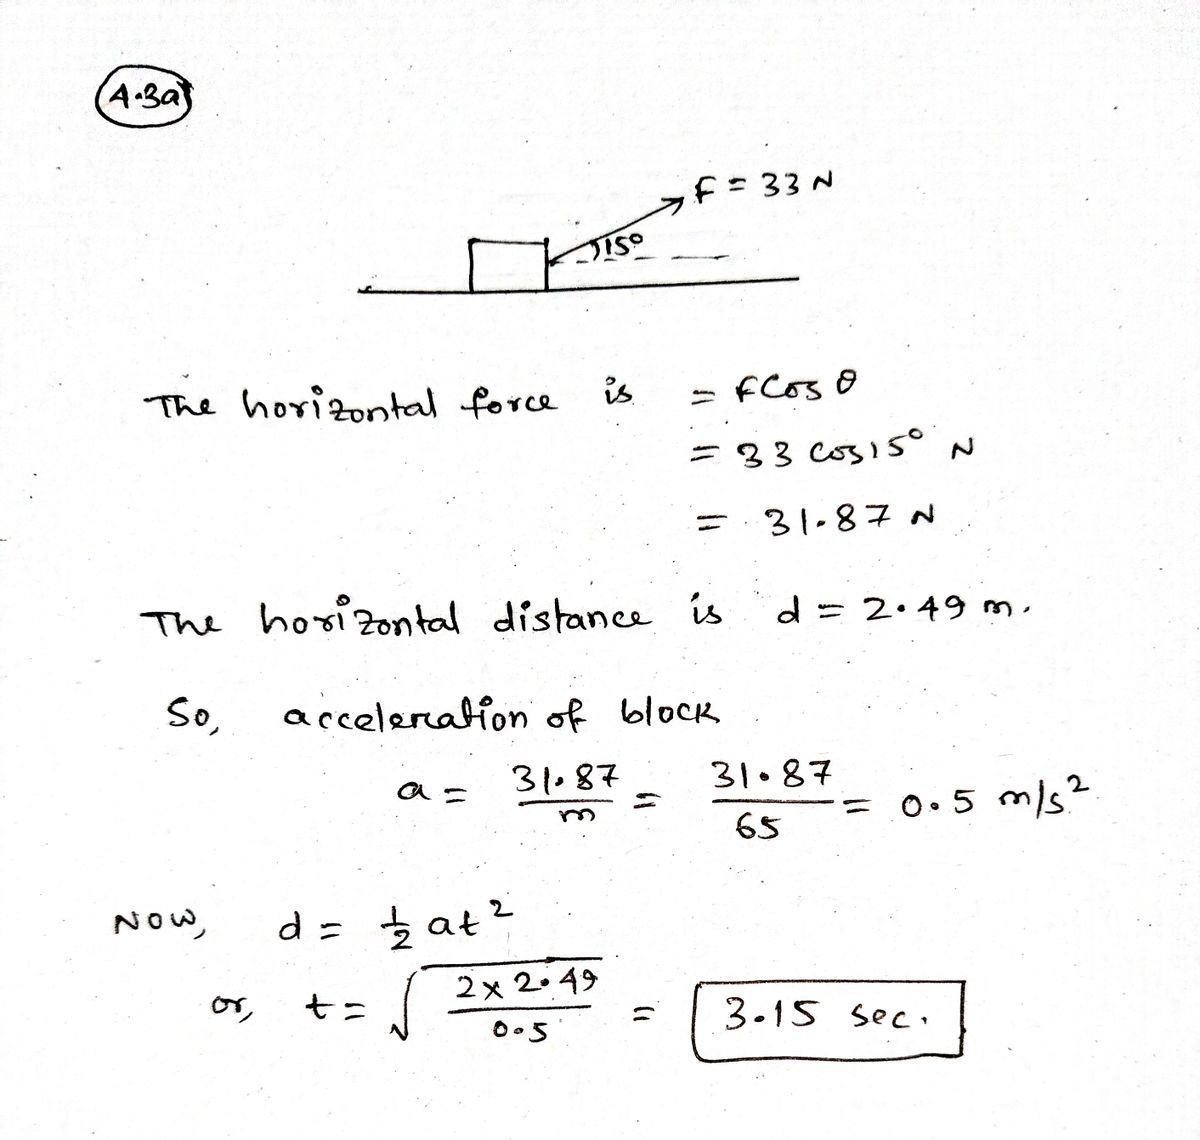 4.3a)
F = 33 N
15°
The horizontal force is = F Cos θ
= 33 cos15° N
= 31.87 N
The horizontal distance is d = 2.49 m.
So, acceleration of block
a = 31.87/m = 31.87/65 = 0.5 m/s²
Now, d = 1/2 at²
or, t = √(2×2.49/0.5) = 3.15 sec.